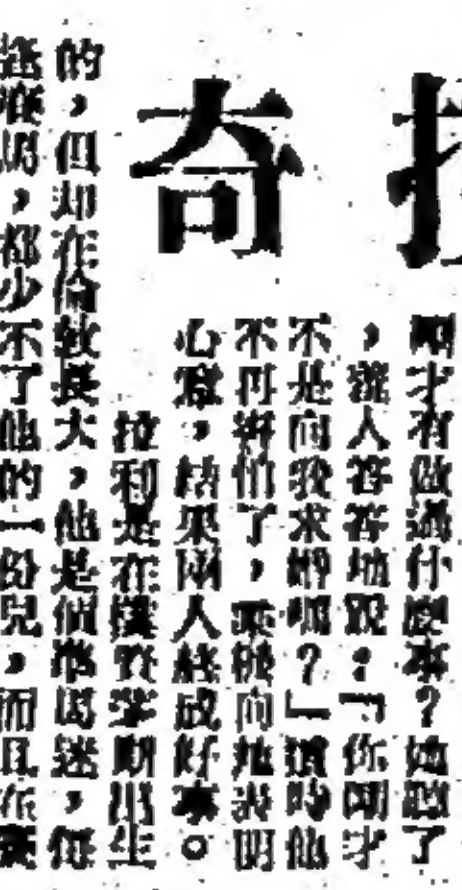 奇
剛才有做過什麼事?她聽了
,羞人答答地說:「你剛才
不是向我求婚嗎?」這時他
不再害怕了,乘機向她表明
心意,結果兩人終成好事。
拉利是在樸資茅斯出生
的,但却在倫敦長大,他是個準馬迷,每
逢賽馬,都少不了他的一份兒,而且在賽